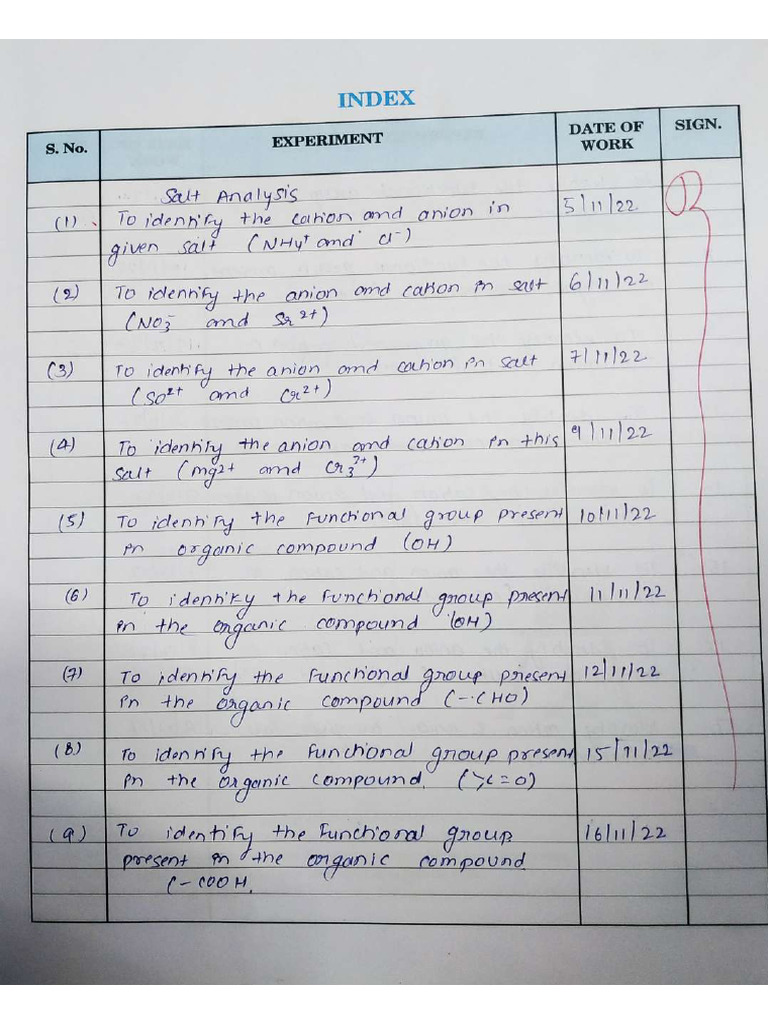 INDEX
S. No. EXPERIMENT DATE OF WORK SIGN.
Salt Analysis
(1) To identify the cation and anion in 5/11/22
given salt (NH4+ and Cl-)
(2) To identify the anion and cation in salt 6/11/22
(NO3- and Sr2+)
(3) To identify the anion and cation in salt 7/11/22
(SO2+ and Cr2+)
(4) To identify the anion and cation in this 9/11/22
salt (mg2+ and
(5) To identify the functional group present 10/11/22
in organic compound (OH)
(6) To identify the functional group present 11/11/22
in the organic compound (OH)
(7) To identify the functional group present 12/11/22
in the organic compound (-CHO)
(8) To identify the functional group present 15/11/22
in the organic compound. (>C=O)
(9) To identify the functional group 16/11/22
present in the organic compound
(-COOH.